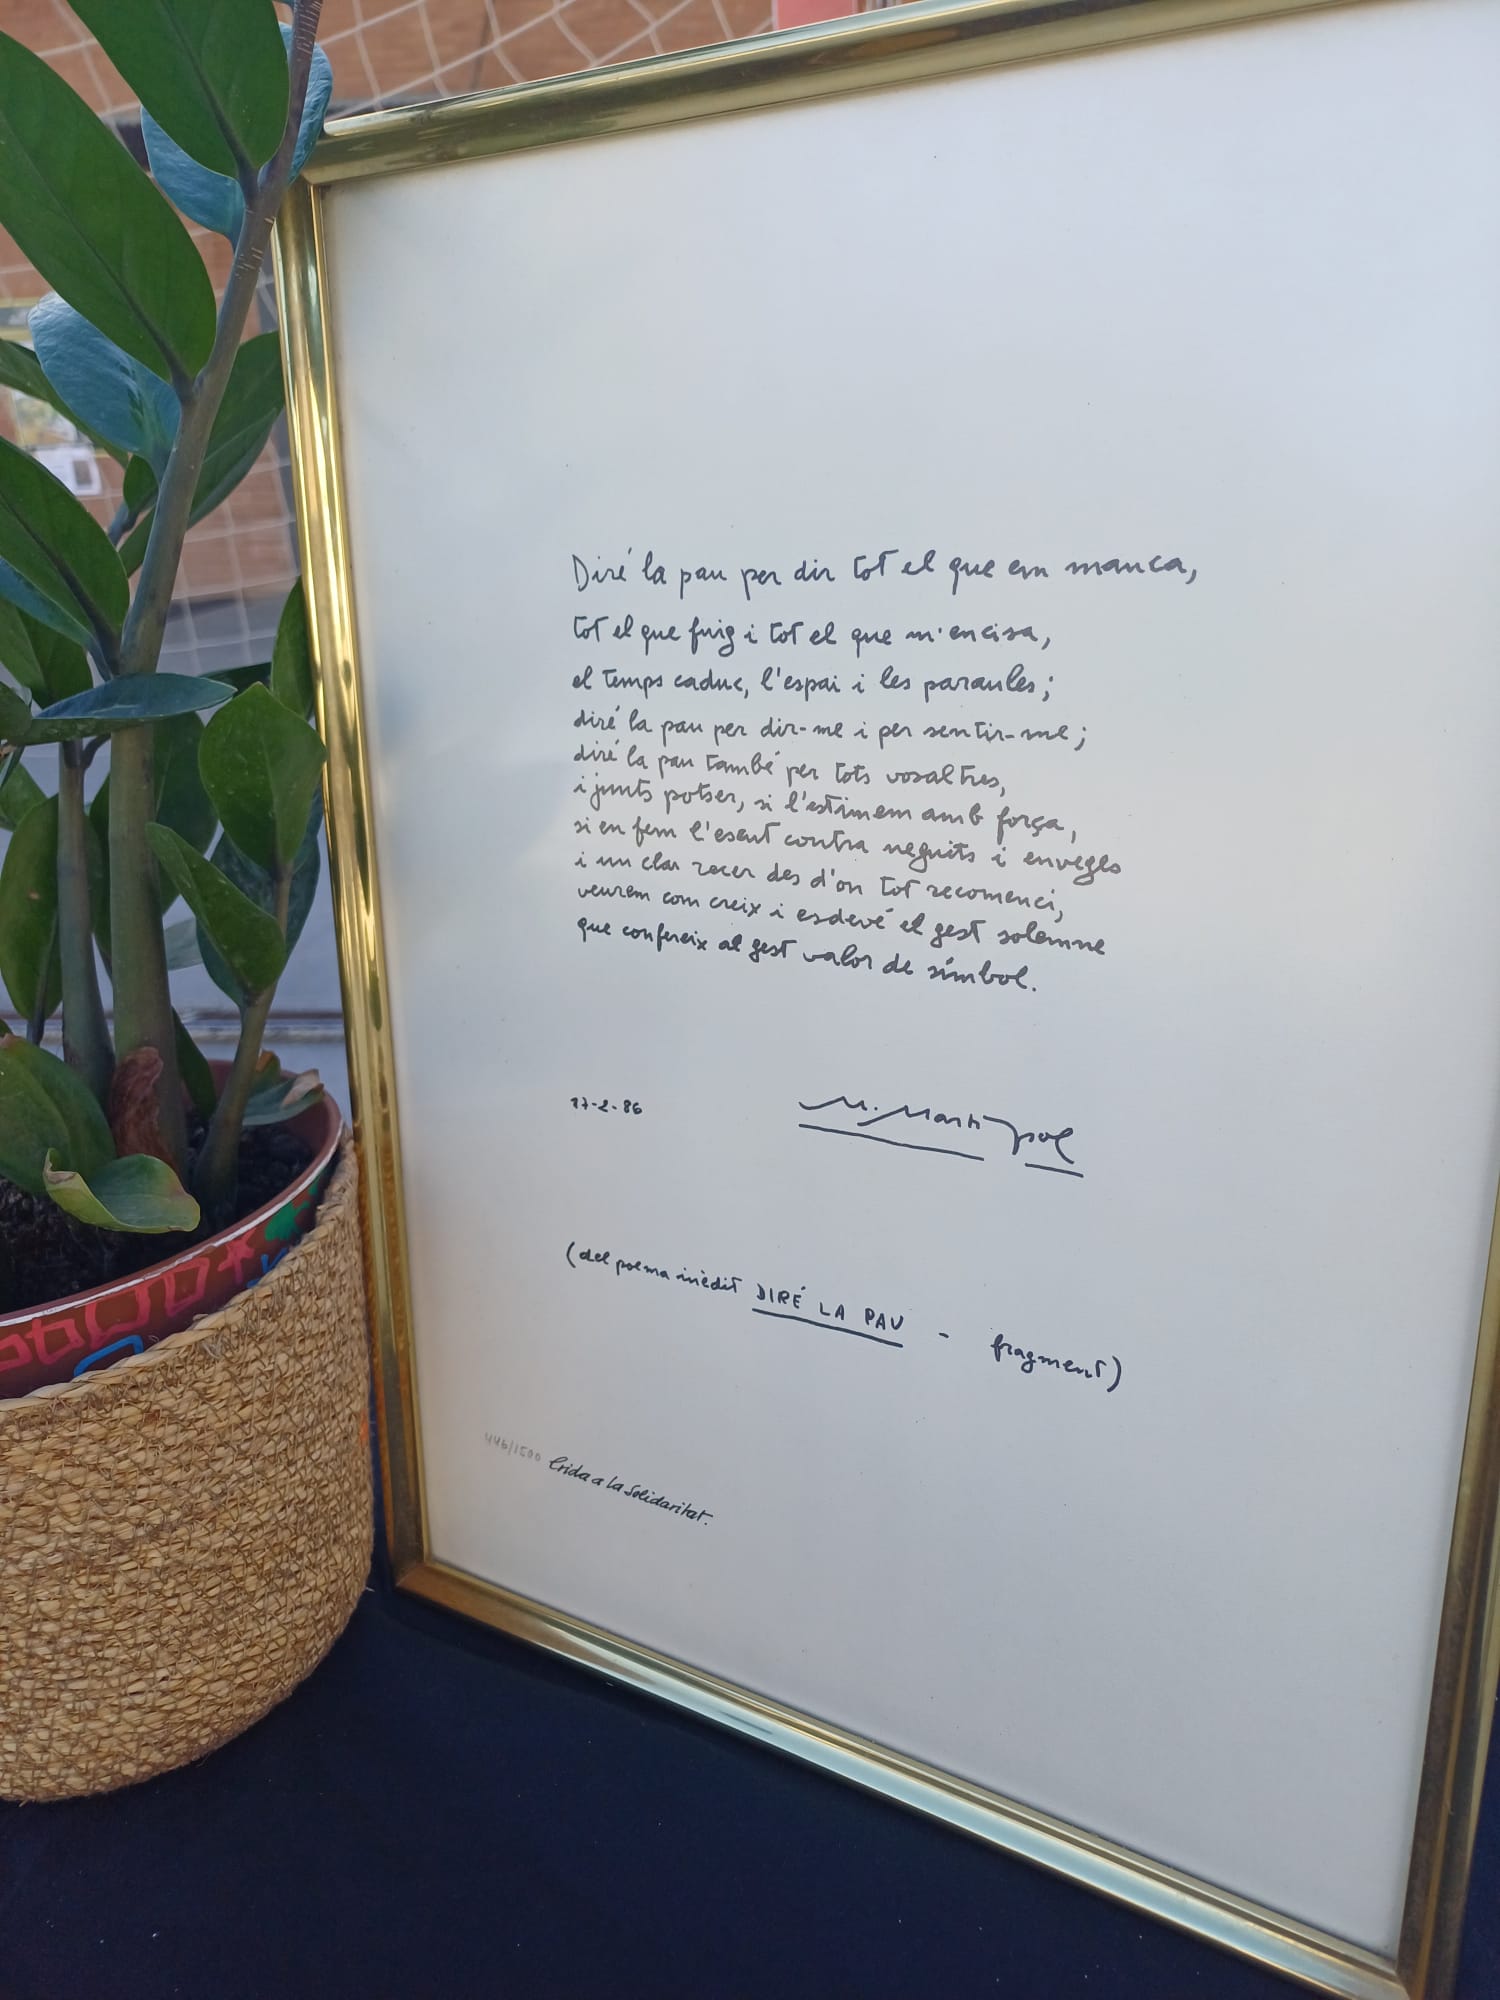 Diré la pau per dir tot el que em manca,
tot el que fuig i tot el que m'encisa,
el temps caduc, l'espai i les paraules;
diré la pau per dir-me i per sentir-me;
diré la pau també per tots vosaltres,
i junts potser, si l'estimem amb força,
si en fem l'escut contra neguits i enveges
i un clar recer des d'on tot recomenci,
veurem com creix i esdevé el gest solemne
que confereix al gest valor de símbol.
17-2-86
M. Martí Pol
(del poema inèdit DIRÉ LA PAU - fragment)
446/1500 Crida a la Solidaritat.